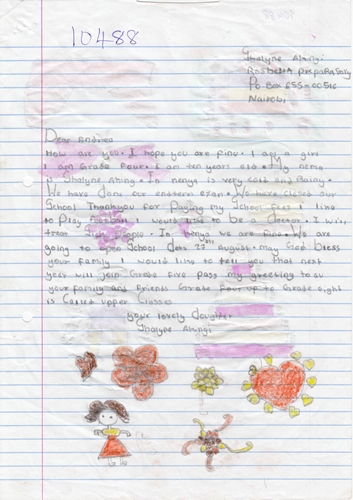 10488
Jhalyne Akinyi
Rosbella preparatory
Po Box 655-00516
Nairobi
Dear Andrea
How are you. I hope you are finu. I am a girl
I am Grade Four. I am ten years old. My name
is Jhalyne Akinyi. In kenya is very cold and Rainy.
We have done our endterm exam. We have closed our
School Thankyou for Paying my School Fees. I like
to Play I would like to be a doctor. I will
treat people. In kenya we are
going to open School date 25 August. may God bless
your family I would like to tell you that next
year will join Grade Five pass my greeting to
your family and Friends Grade Four up to Grade eight
is Called upper Classes
your lovely daughter
Jhalyne Akinyi